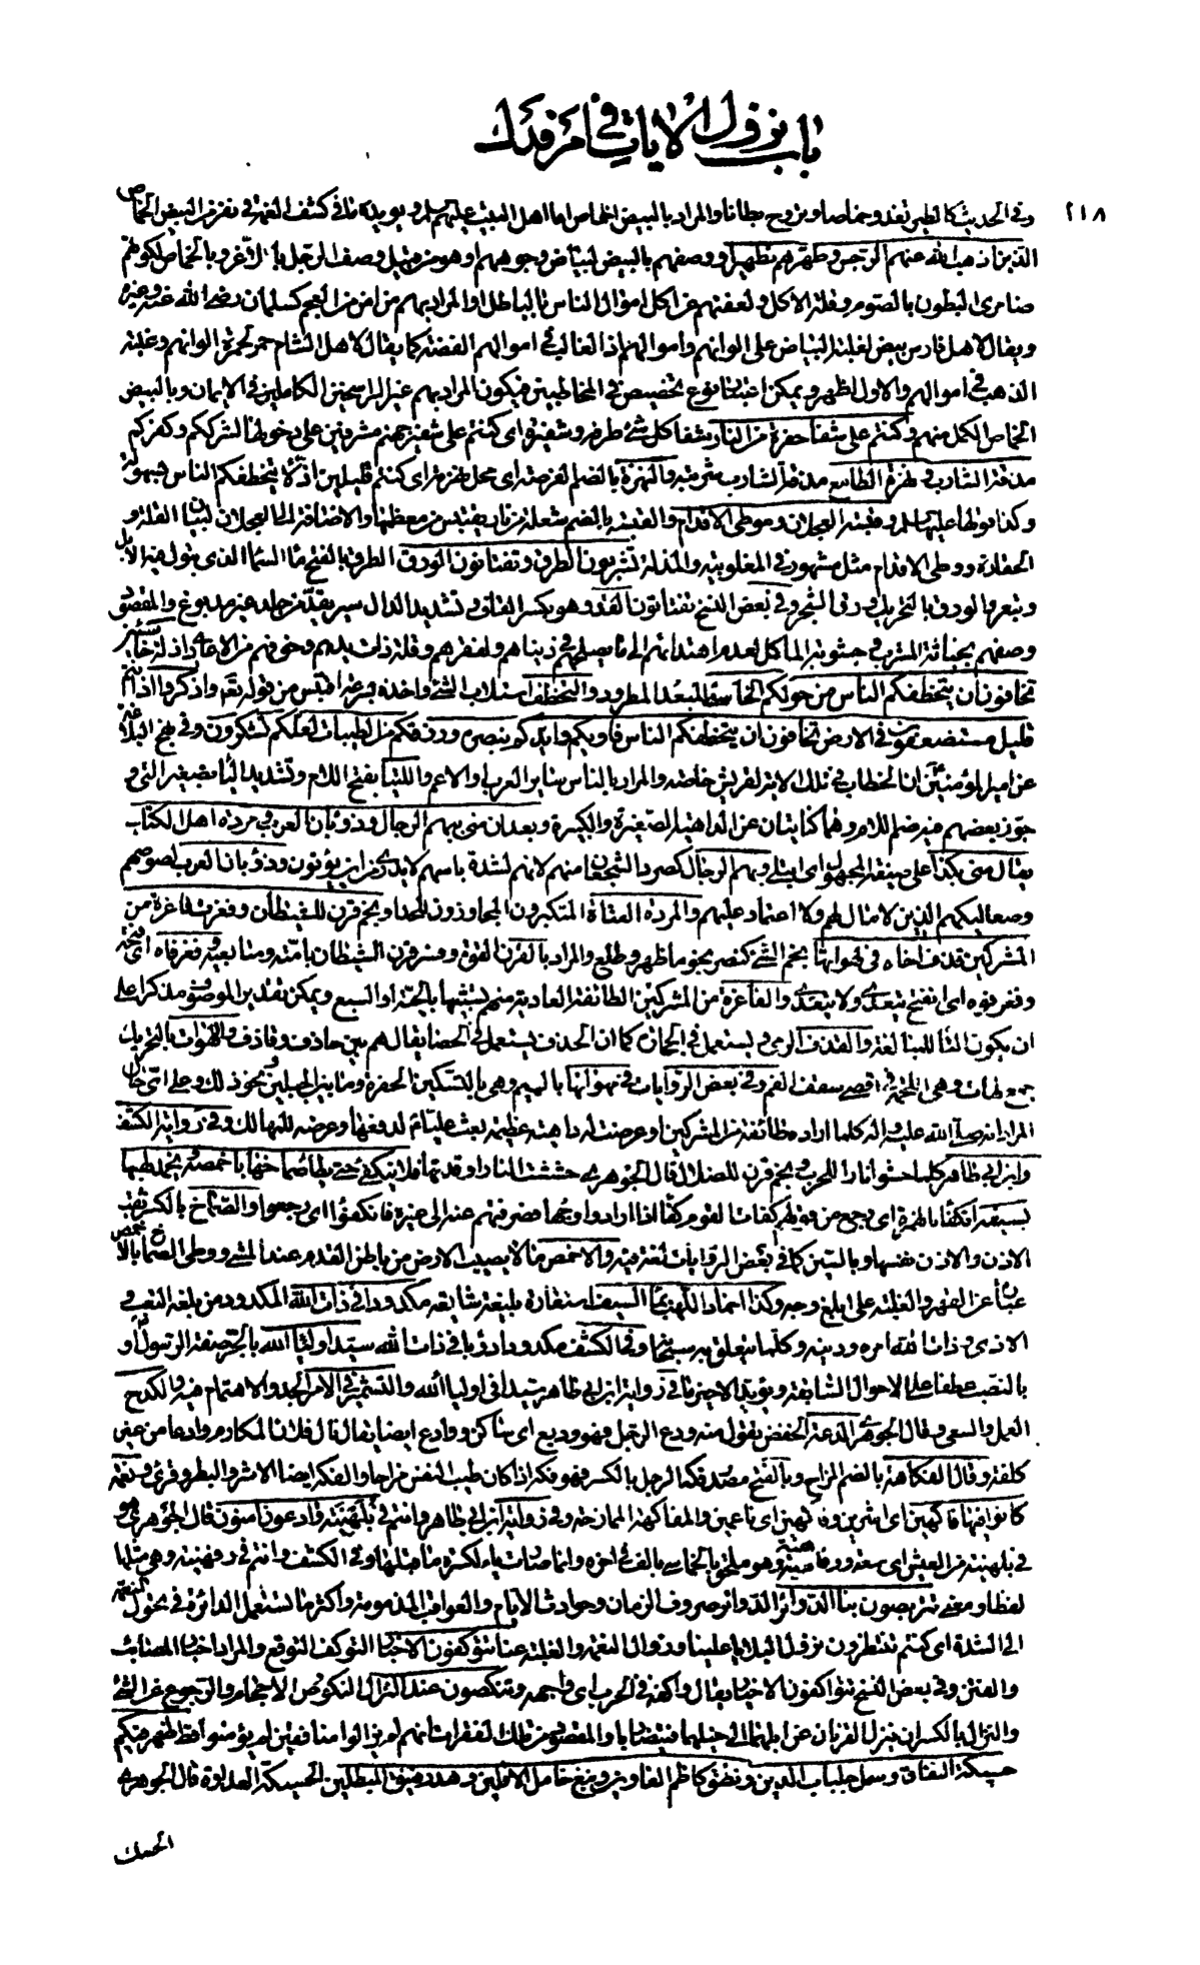 باب نزول الآيات في أمر فدك
٢١٨
وفي الحديث كالطير تغدو خماصا وتروح بطانا والمراد بالبيض الخماص اما اهل البيت عليهم السلم ويؤيده ما في كشف الغمة في نفر من البيض الخماص
الذين اذهب الله عنهم الرجس وطهرهم تطهيرا ووصفهم بالبيض لبياض وجوههم او هو من قبيل وصف الرجل بالاغر وبالخماص لكونهم
ضامري البطون بالصوم وقلة الاكل ولعفتهم عن اكل اموال الناس بالباطل او المراد بهم من امن من العجم كسلمان رضي الله عنه وغيره
ويقال لاهل فارس بيض لغلبة البياض على الوانهم واموالهم اذ الغالب في اموالهم الفضة كما يقال لاهل الشام حمر لحمرة الوانهم وغلبة
الذهب في اموالهم والاول اظهر ويمكن اعتبار نوع تخصيص في المخاطبين فيكون المراد بهم غير الراسخين الكاملين في الايمان وبالبيض
الخماص الكمل منهم وكنتم على شفا حفرة من النار شفا كل شئ طرفه وشفيره اي كنتم على شفير جهنم مشرفين على دخولها لشرككم وكفركم
مذقة الشارب ونهزة الطامع مذقة الشارب شربته والنهزة بالضم الفرصة اي محل نهزته اي كنتم قليلين اذلاء يتخطفكم الناس بسهولة
وكذا قولها عليها السلم وقبسة العجلان وموطئ الاقدام والقبسة بالضم شعلة من نار يقتبس من معظمها والاضافة الى العجلان لبيان القلة و
الحقارة ووطئ الاقدام مثل مشهور في المغلوبية والمذلة تشربون الطرق وتقتاتون الورق الطرق بالفتح ماء السماء الذي تبول فيه الابل
وتبعر والورق بالتحريك ورق الشجر وفي بعض النسخ تقتاتون القد وهو بكسر القاف وتشديد الدال سير يقد من جلد غير مدبوغ والمقصود
وصفهم بخباثة المشرب وجشوبة الماكل لعدم اهتدائهم الى ما يصلحهم في دنياهم ولفقرهم وقلة ذات يدهم وخوفهم من الاعادي اذلة خاسئين
تخافون ان يتخطفكم الناس من حولكم الخاسئ المبعد المطرود والتخطف استلاب الشئ واخذه بسرعة اقتبس من قوله تعالى واذكروا اذ انتم
قليل مستضعفون في الارض تخافون ان يتخطفكم الناس فاويكم وايدكم بنصره ورزقكم من الطيبات لعلكم تشكرون وفي نهج البلاغة
عن امير المؤمنين ان الخطاب في تلك الاية لقريش خاصة والمراد بالناس سائر العرب او الاعم واللتيا بفتح اللام وتشديد الياء تصغير التي و
جوز بعضهم فيه ضم اللام وهما كنايتان عن الداهية الصغيرة والكبيرة وبعد ان مني ببهم الرجال وذؤبان العرب ومردة اهل الكتاب
يقال مني بكذا على صيغة المجهول اي ابتلي وبهم الرجال كصرد الشجعان منهم لانهم لشدة باسهم لا يدرى من اين يؤتون وذؤبان العرب لصوصهم
وصعاليكهم الذين لا مال لهم ولا اعتماد عليهم والمردة العتاة المتكبرون المجاوزون للحد او نجم قرن للشيطان وفغرت فاغرة من
المشركين قذف اخاه في لهواتها نجم الشئ كنصر نجوما ظهر وطلع والمراد بالقرن القوة وفسر قرن الشيطان بامته ومتابعيه وفغر فاه اي فتحه
وفغر فوه اي انفتح يتعدى ولا يتعدى والفاغرة من المشركين الطائفة العادية منهم تشبيها بالحية او السبع ويمكن تقدير الموصوف مذكرا على
ان يكون التاء للمبالغة والقذف الرمي ويستعمل في الحجارة كما ان الحذف يستعمل في الحصا يقال هم بين حاذف وقاذف واللهوات بالتحريك
جمع لهات وهي اللحمة في اقصى سقف الفم وفي بعض الروايات في مهواتها بالميم وهي بالتسكين الحفرة وما بين الجبلين ونحو ذلك وعلى اي حال
المراد انه صلى الله عليه واله كلما اراده طائفة من المشركين او عرضت له داهية عظيمة بعث عليا لدفعها وعرضه للمهالك وفي رواية الكشف
وابن ابي طاهر كلما حشوا نارا للحرب ونجم قرن للضلال قال الجوهري حششت النار اوقدتها فلا ينكفئ حتى يطا صماخها باخمصه ويخمد لهبها
بسيفه انكفا بالهمزة اي رجع من قولهم كفات القوم كفئا اذا ارادوا وجها فصرفتهم عنه الى غيره فانكفئوا اي رجعوا والصماخ بالكسر ثقب
الاذن والاذن نفسها وبالسين كما في بعض الروايات لغة فيه والاخمص ما لا يصيب الارض من باطن القدم عند المشي ووطئ الصماخ بالاخمص
عبارة عن القهر والغلبة على ابلغ وجه وكذا اخماد اللهب بماء السيف استعارة بليغة شايعة مكدودا في ذات الله المكدود من بلغه التعب و
الاذى وذات الله امره ودينه وكلما يتعلق به سبحانه وفي الكشف مكدودا دؤبا في ذات الله سيدا اولياء الله بالجر صفة الرسول او
بالنصب عطفا على الاحوال السابقة ويؤيد الاخير ما في رواية ابن ابي طاهر سيدا في اولياء الله والتشمير في الامر الجد والاهتمام فيه والكدح
العمل والسعي وقال الجوهري الدعة الخفض يقول منه ودع الرجل فهو وديع اي ساكن ووادع ايضا يقال نال فلان المكارم وادعا من غير
كلفة وقال الفكاهة بالضم المزاح وبالفتح مصدر فكه الرجل بالكسر فهو فكه اذا كان طيب النفس مزاحا والفكه ايضا الاشر والبطر وقرئ ونعمة
كانوا فيها فاكهين اي اشرين وفاكهين اي ناعمين والمفاكهة الممازحة وفي رواية ابن ابي طاهر وانتم في بلهنية وادعون امنون قال الجوهري هو
في بلهنية من العيش اي سعة ورفاهية وهو ملحق بالخماسي بالف في اخره وانما صارت ياء لكسرة ما قبلها وفي الكشف وانتم في رفهنية وهي مثلها
لفظا ومعنى تتربصون بنا الدوائر الدوائر صروف الزمان وحوادث الايام والعواقب المذمومة واكثر ما تستعمل الدائرة في تحول النعمة
الى الشدة اي كنتم تنتظرون نزول البلايا علينا وزوال النعمة والغلبة عنا تتوكفون الاخبار التوكف التوقع والمراد اخبار المصائب
والفتن وفي بعض النسخ تتواكفون الاخبار يقال واكفه في الحرب اي واجهه وتنكصون عند النزال النكوص الاحجام والرجوع عن الشئ
والنزال بالكسر ان ينزل القرنان عن ابلهما الى خيلهما فيتضاربا والمقصود من تلك الفقرات انهم لم يزالوا منافقين لم يؤمنوا قط ظهر فيكم
حسيكة النفاق وسمل جلباب الدين ونطق كاظم الغاوين ونبغ خامل الاقلين وهدر فنيق المبطلين الحسيكة العداوة قال الجوهري
الحسك